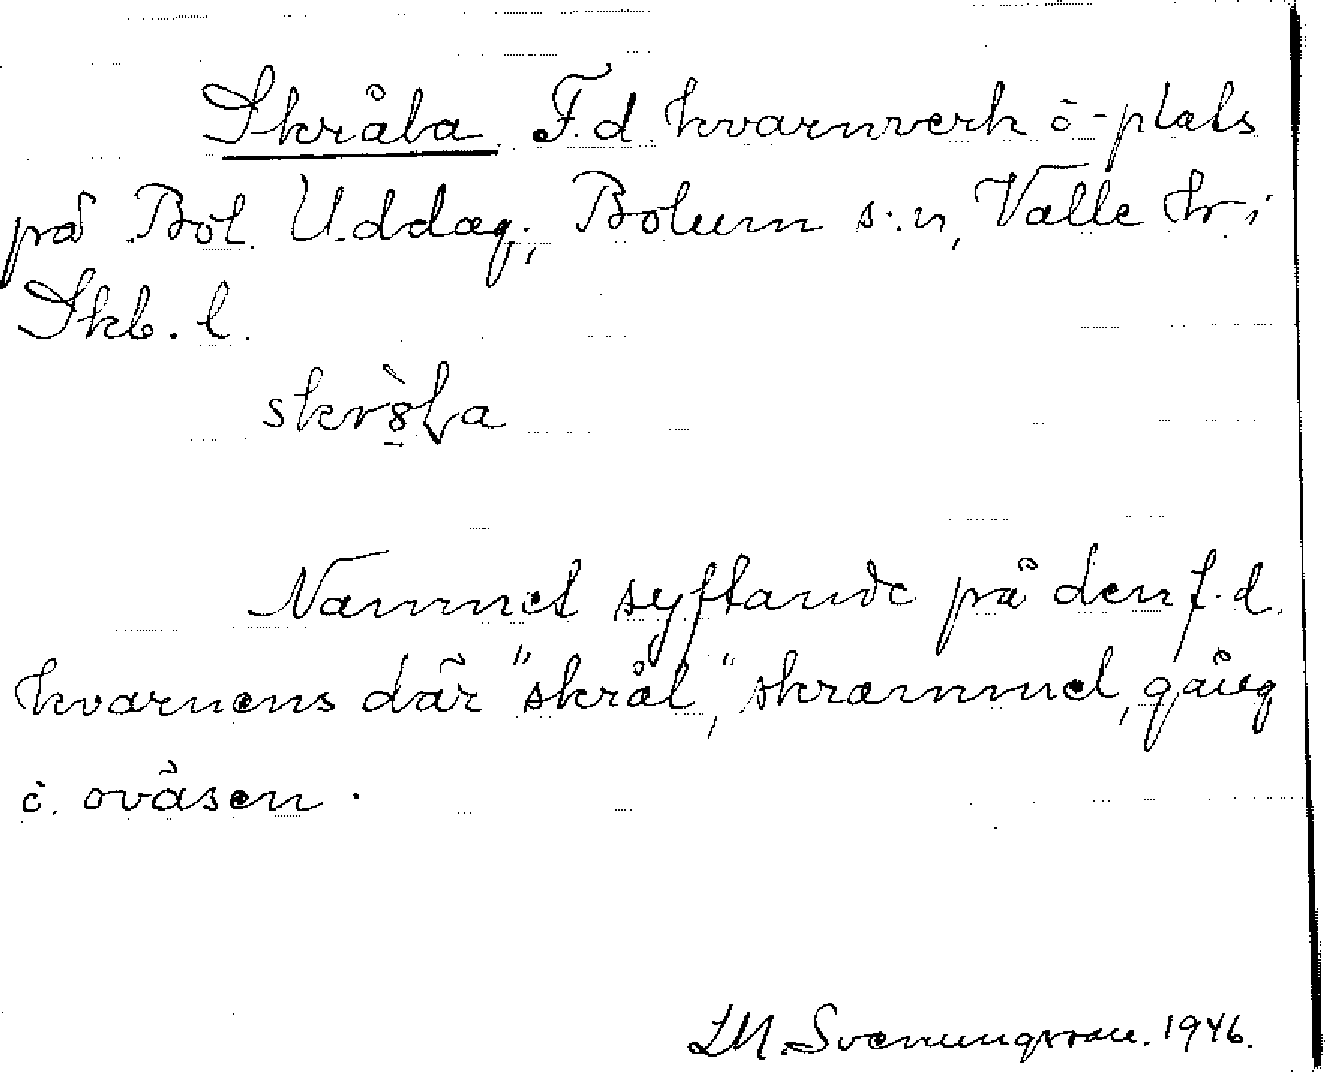 Skråla. F.d. kvarnverk o -plats
på Böl. Uddag., Bolum s:n, Valle hr i
Skb. l.
skròla
Namnet syftande på den f.d.
kvarnens där "skrål", skrammel, gång
o. oväsen.
LM. Svenungsson. 1946.